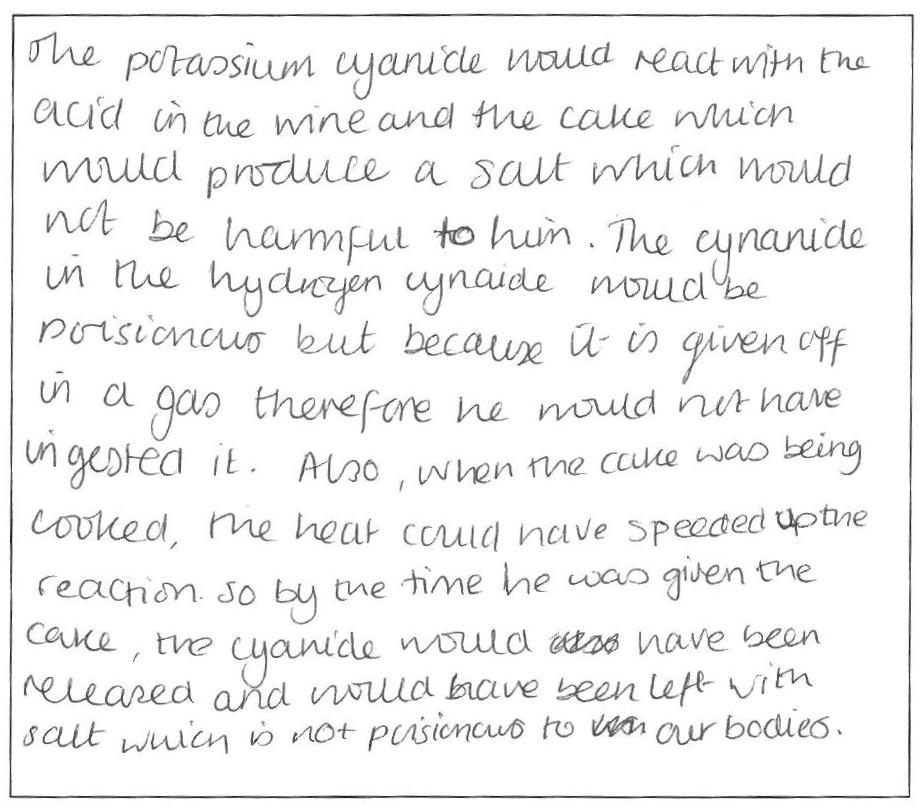 The potassium cyanide would react with the
acid in the wine and the cake which
would produce a salt which would
not be harmful to him. The cynanide
in the hydrogen cynaide would be
poisionous but because it is given off
in a gas therefore he would not have
ingested it. Also, when the cake was being
cooked, the heat could have speeded up the
reaction. so by the time he was given the
cake, the cyanide would have been
released and would have been left with
salt which is not poisionous to our bodies.